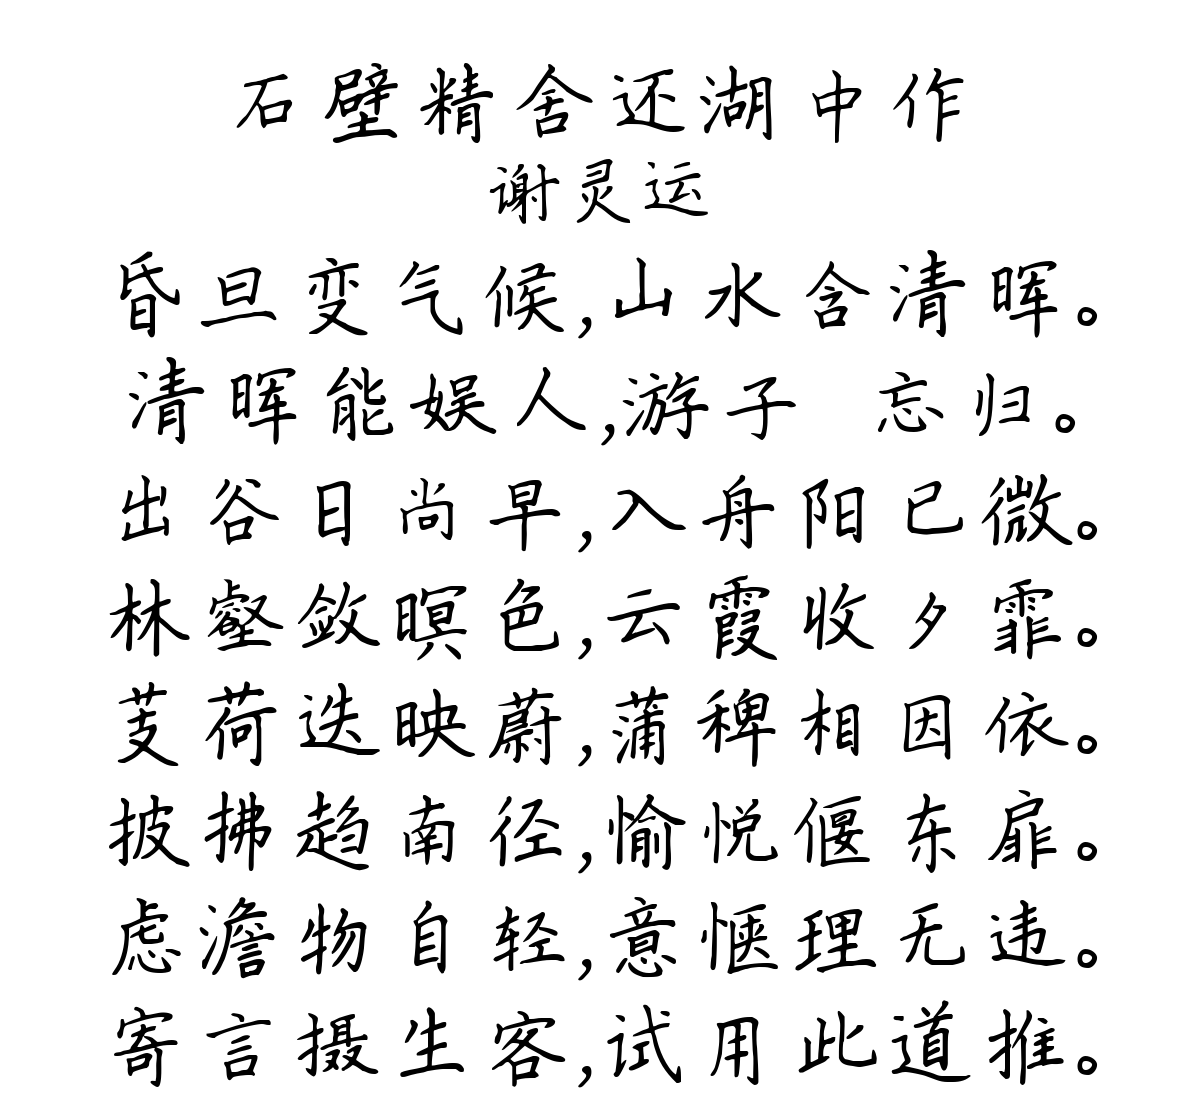 石壁精舍还湖中作
谢灵运
昏旦变气候,山水含清晖。
清晖能娱人,游子 忘归。
出谷日尚早,入舟阳已微。
林壑敛暝色,云霞收夕霏。
芰荷迭映蔚,蒲稗相因依。
披拂趋南径,愉悦偃东扉。
虑澹物自轻,意惬理无违。
寄言摄生客,试用此道推。